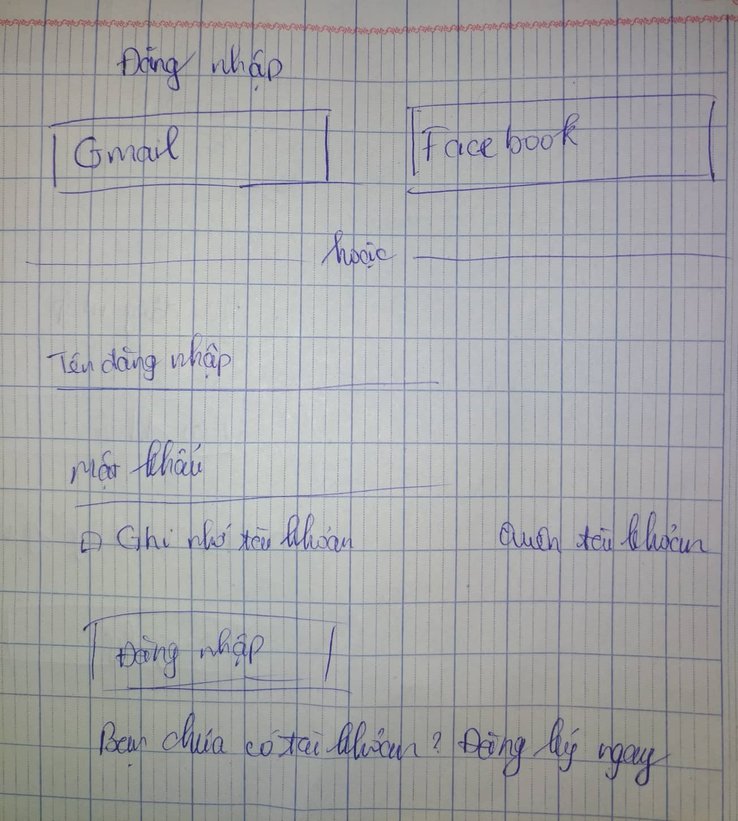 Đăng nhập
Gmail Facebook
hoặc
Tên đăng nhập
Mật khẩu
Ghi nhớ tài khoản Quên tài khoản
Đăng nhập
Bạn chưa có tài khoản? Đăng ký ngay